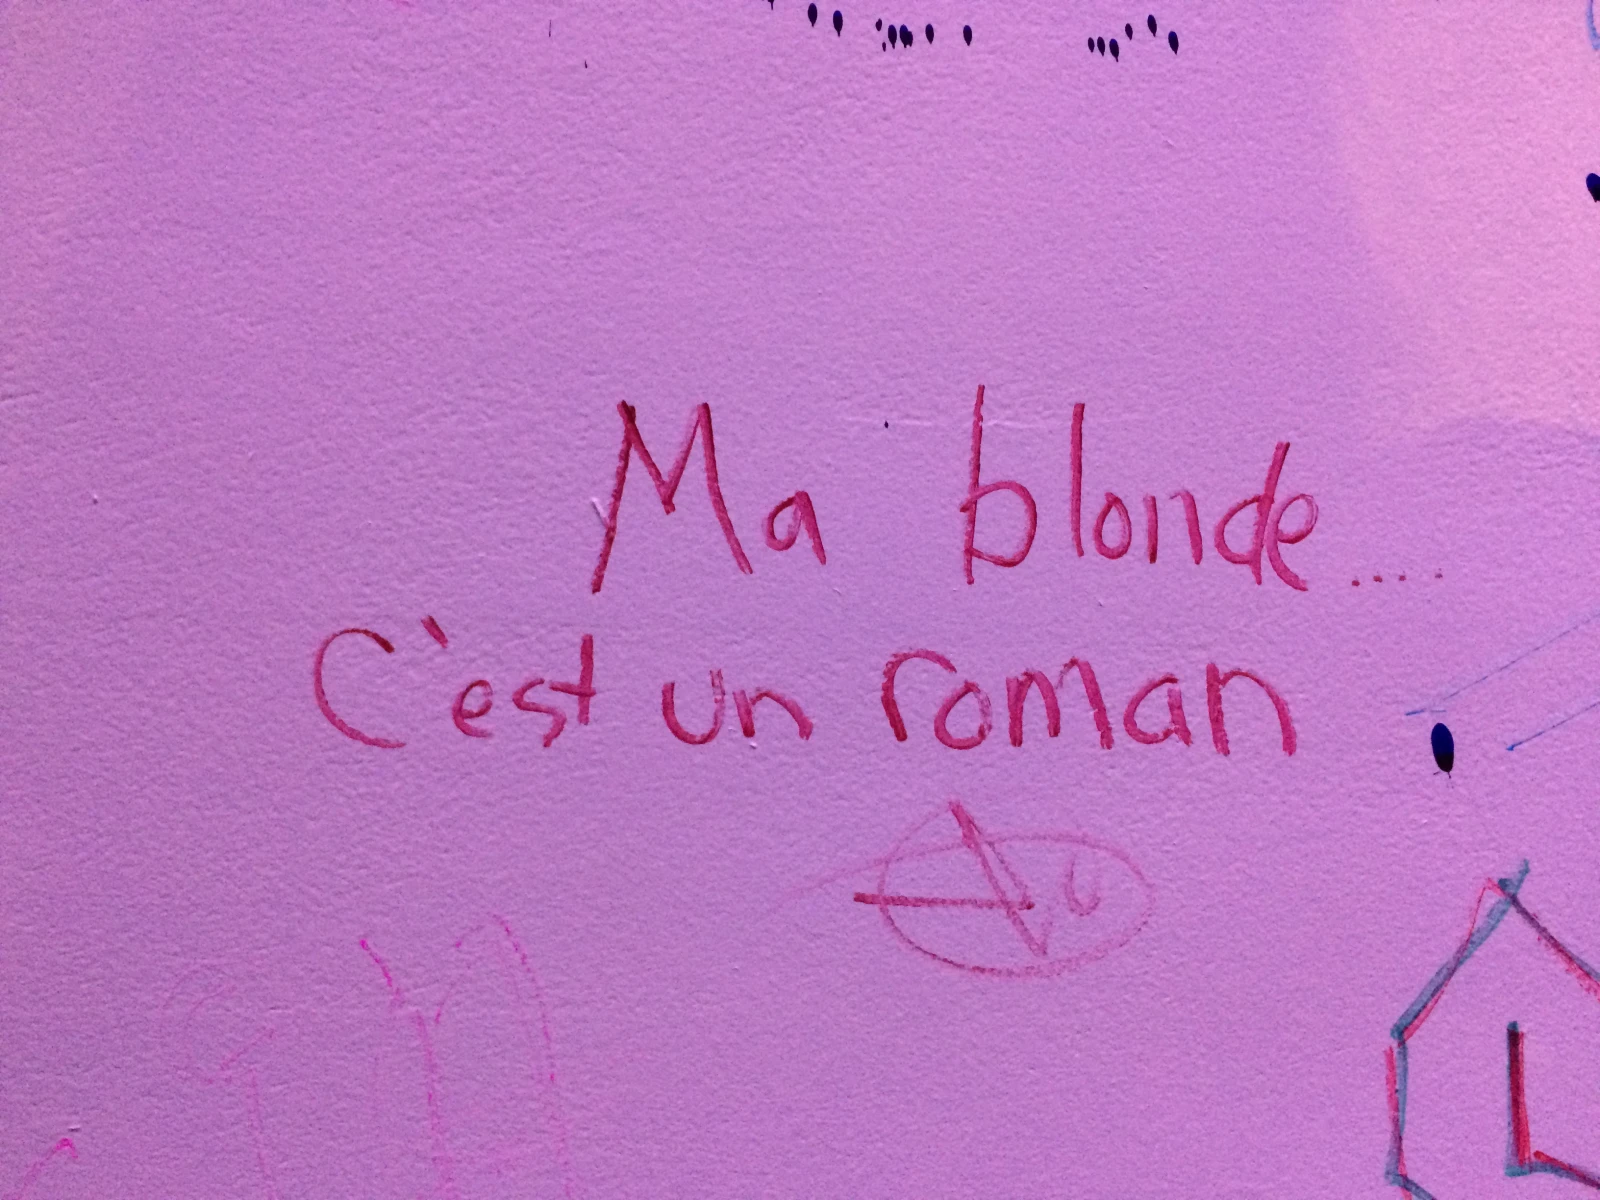 Ma blonde....
C'est un roman